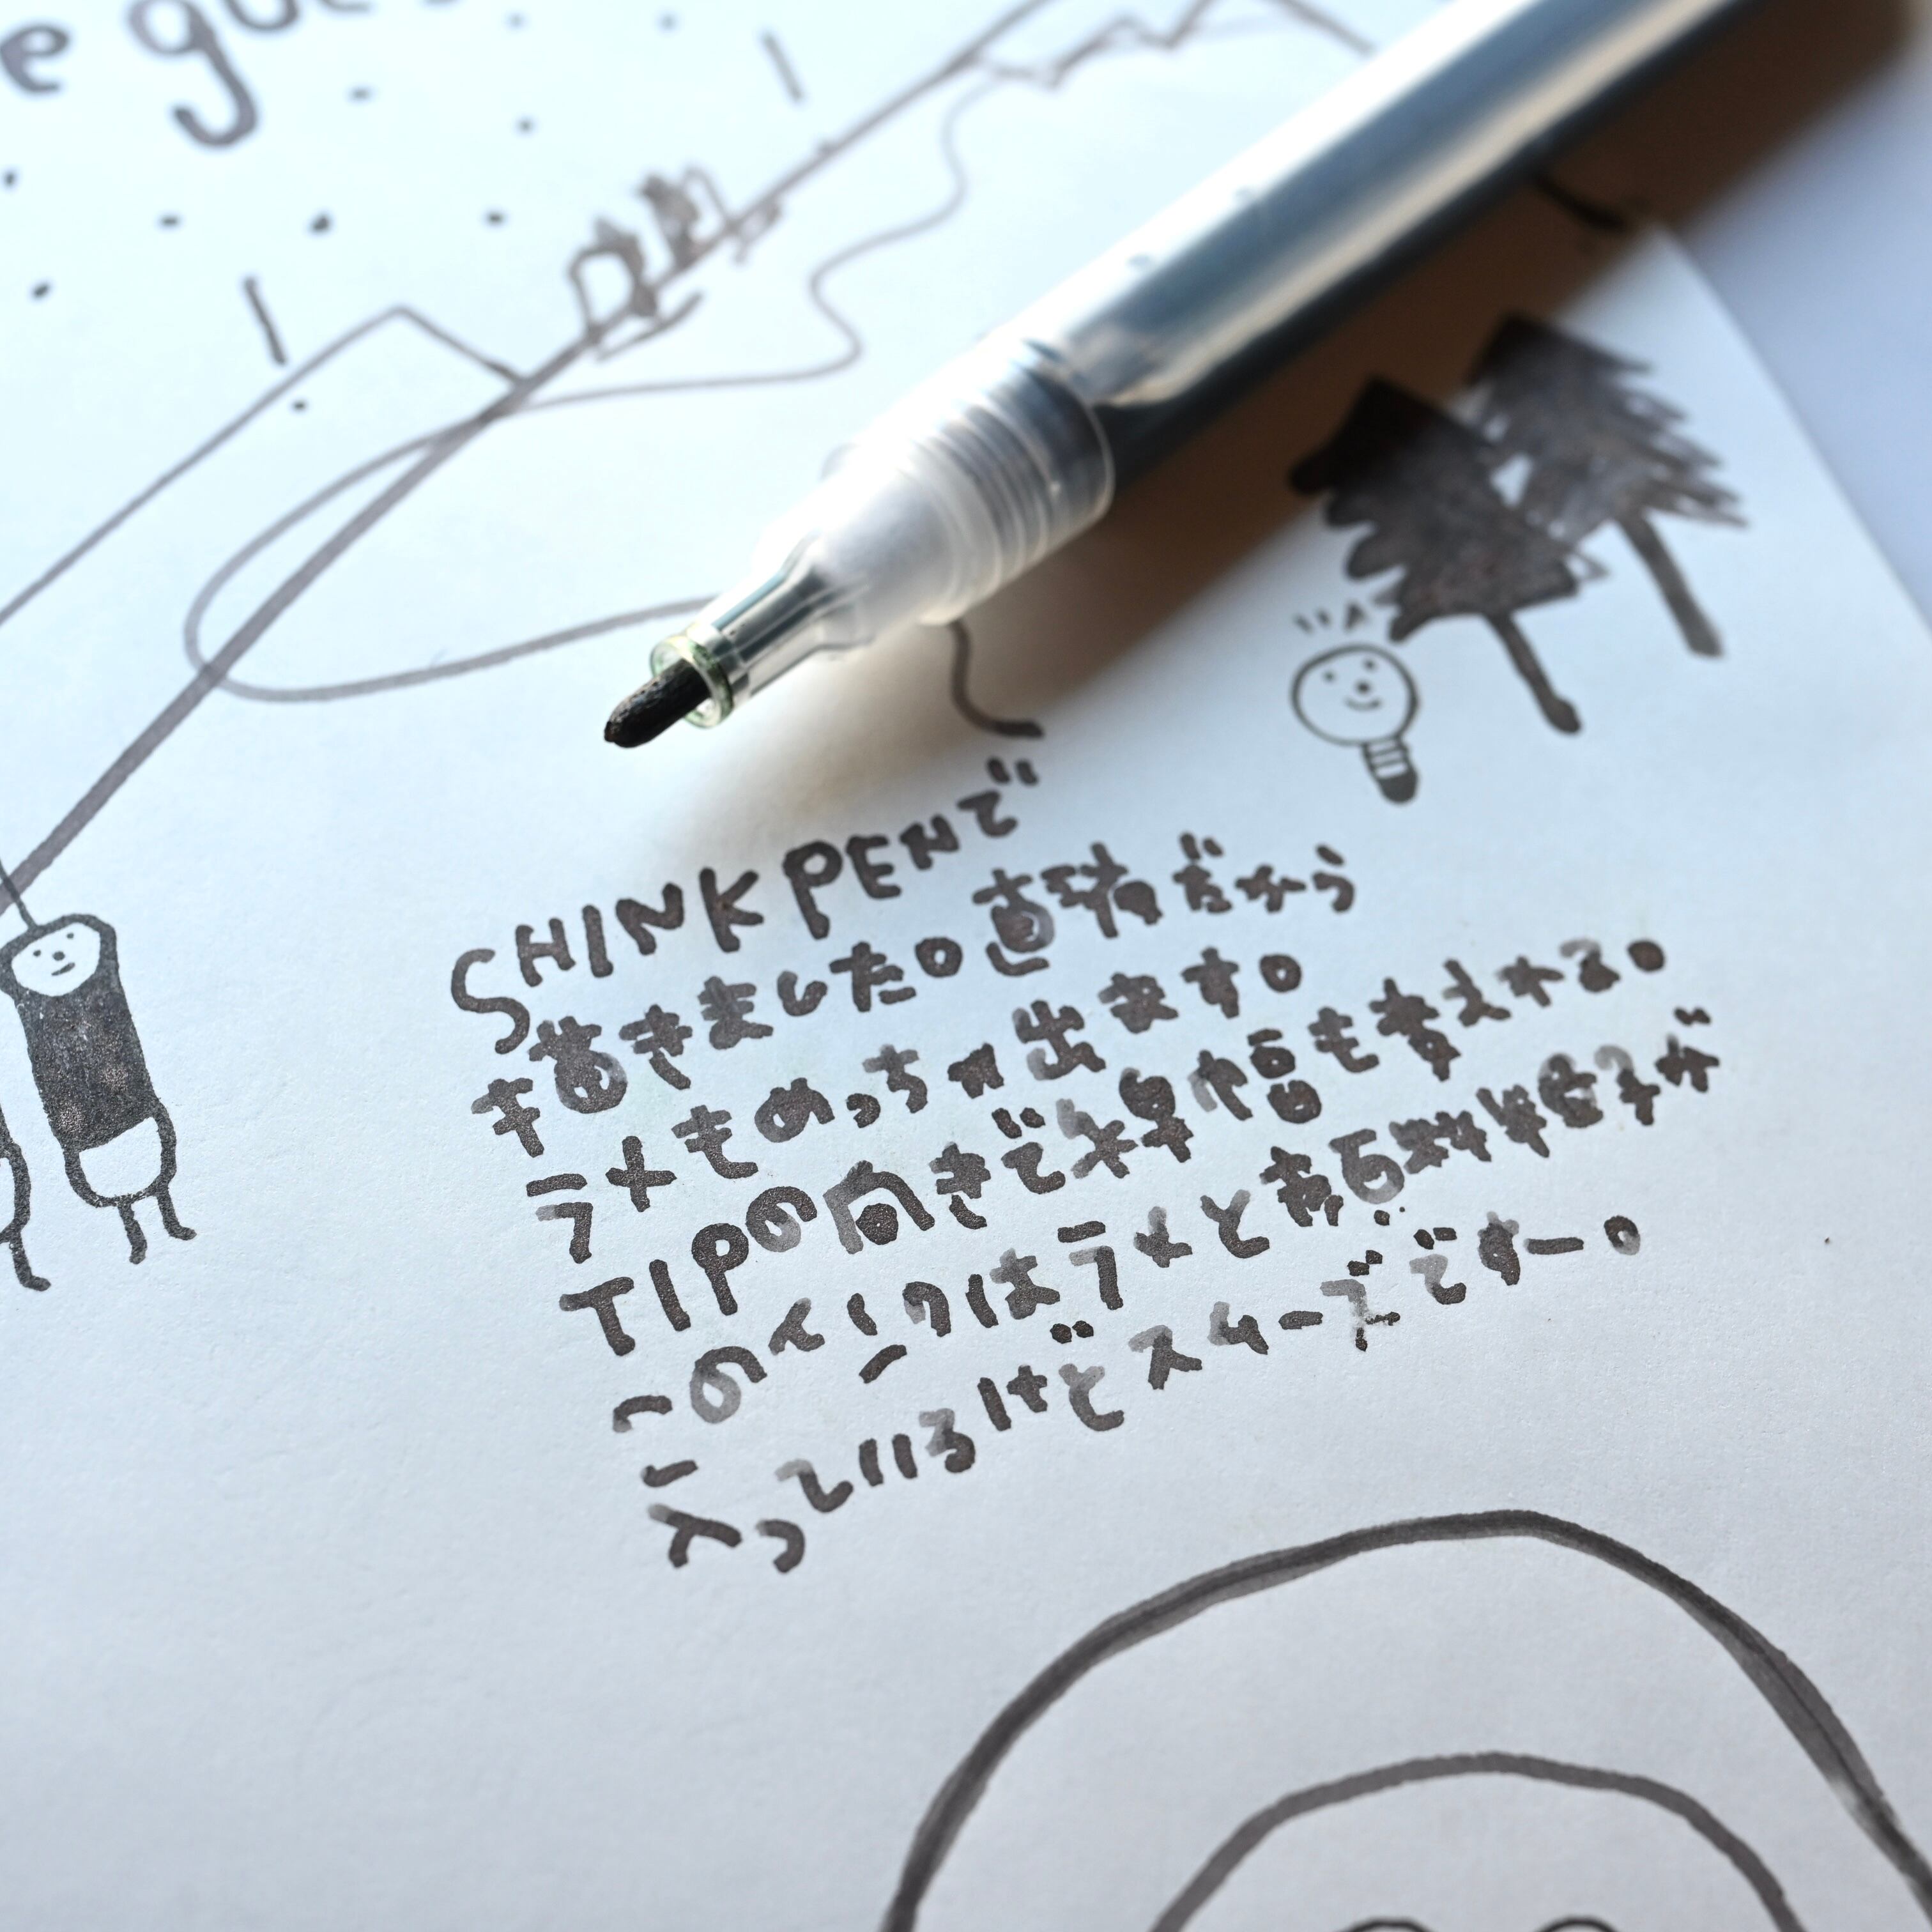 e gue
SHINK PENで
描きました。直液だから
ラメもめっちゃ出ます。
TIPの向きで線幅も変えれる。
このインクはラメと顔料粒子が
入っているけどスムーズですー。